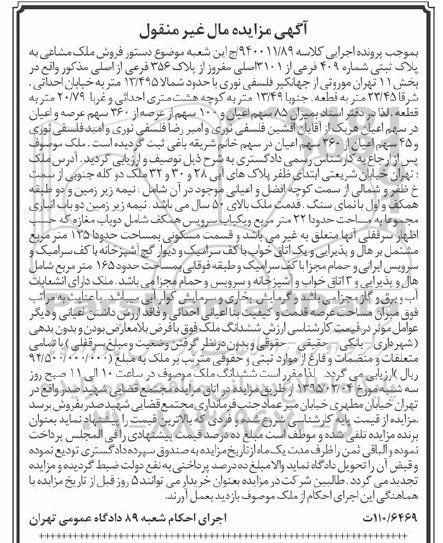 آگهی مزایده مال غیر منقول
بموجب پرونده اجرایی کلاسه ۹۴۰۰۱۱/۸۹ج این شعبه موضوع دستور فروش ملک مشاعی به
پلاک ثبتی شماره ۴۰۹ فرعی از ۳۱۰۱اصلی مفروز از پلاک ۳۵۶ فرعی از اصلی مذکور واقع در
بخش ۱۱ تهران موروثی از جهانگیر فلسفی نوری با حدود شمالا ۱۳/۴۹۵ متر به خیابان احداثی .
شرقا ۲۳/۴۵ متر به قطعه . جنوبا ۱۳/۴۹ متر به کوچه هشت متری احداثی و غربا ۲۰/۷۹ متر به
قطعه . لذا در دفتر اسناد بمیزان سهم اعیان و ۱۰۰ سهم از عرصه از ۳۶۰ سهم عرصه و اعیان
در سهم هریک از آقایان افشین فلسفی نوری و امیر رضا فلسفی نوری و امید فلسفی نوری
و ۴۵ سهم اعیان از ۳۶۰ سهم اعیان در سهم خانم شریفه باغی ثبت گردیده است . ملک موصوف
پس از ارجاع به کارشناس رسمی دادگستری به شرح ذیل توصیف و ارزیابی گردید. آدرس ملک
: تهران خیابان شریعتی ابتدای ظفر پلاک های آبی ۲۸ و ۳۰ و ۳۲ ملک دو کله جنوبی از سمت
خ ظفر و شمالی از سمت کوچه افضل و اعیانی موجود در آن شامل : نیمه زیر زمین و دو طبقه
همکف و اول با نمای سنگ . قدمت ملک بالای ۵۰ سال می باشد . نیمه زیر زمین دو باب انباری
مجموعا به مساحت حدودا ۲۲ متر مربع ویکباب سرویس همکف شامل دوباب مغازه که حسب
اظهار سرقفلی آنها متعلق به غیر می باشد و قسمت مسکونی بمساحت حدودا ۱۳۵ متر مربع
مشتمل بر هال و پذیرایی و یک اتاق خواب با کف سرامیک و دیوار گچ آشپزخانه با کف سرامیک و
سرویس ایرانی و حمام مجزا با کف سرامیک و طبقه فوقانی بمساحت حدود ۱۶۵ متر مربع شامل
هال و پذیرایی و ۳ اتاق خواب و آشپزخانه و سرویس و حمام مجزا می باشد. ملک دارای انشعابات
آب و برق و گاز مجزا می باشد و گرمایش بخاری و سرمایش کولر آبی میباشد . با عنایت به مراتب
فوق میزان مساحت عرصه قدمت و کیفیت بنا اعیانی احداثی و فاقد ارزش داشتن اعیانی و دیگر
عوامل موثر در قیمت کارشناسی ارزش ششدانگ ملک فوق با فرض بلامعارض بودن و بدون بدهی
(شهرداری – بانکی – حقیقی – حقوقی وبدون در نظر گرفتن وضعیت و مبلغ سرقفلی) با تمامی
متعلقات و منضمات و فارغ از موارد ثبتی و حقوقی مترتب بر ملک به مبلغ (۹۴/۵۰۰/۰۰۰/۰۰۰
ریال) ارزیابی می گردد . لذا مقرر است ششدانگ ملک موصوف در ساعت ۱۰ الی ۱۱ صبح روز
سه شنبه مورخ ۱۳۹۵/۰۲/۰۴ از طریق مزایده در اتاق مزایده مجتمع قضایی شهید صدر واقع در
تهران خیابان مطهری خیابان میرعماد جنب فرمانداری مجتمع قضایی شهید صدر بفروش برسد
.مزایده از قیمت پایه کارشناسی شروع شده و فردی که بالاترین قیمت را پیشنهاد نماید بعنوان
برنده مزایده تلقی شده و موظف است مبلغ ده درصد قیمت پیشنهادی را فی المجلس پرداخت
نموده و الباقی ثمن را ظرف مدت یک ماه از تاریخ مزایده به صندوق سپرده دادگستری تودیع نموده
و قبض آن را تحویل دادگاه نماید والا مبلغ ده درصد پرداختی به نفع دولت ضبط گردیده و مزایده
تجدید می گردد . طالبین شرکت در مزایده بعنوان خریدار می توانند ۵ روز قبل از تاریخ مزایده با
هماهنگی این اجرای احکام از ملک موصوف بازدید بعمل آورند.
۱۱۰/۶۴۶۹ت اجرای احکام شعبه ۸۹ دادگاه عمومی تهران